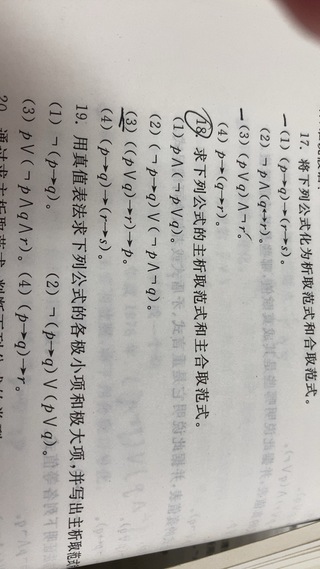 17. 将下列公式化为析取范式和合取范式。
(1) (p→q)→(r→s)。
(2) ¬p∧(q↔r)。
(3) (p∨q)∧¬r。
(4) p→(q→r)。
18. 求下列公式的主析取范式和主合取范式。
(1) p∧(¬p∨q)。
(2) (¬p→q)∨(¬p∧¬q)。
(3) ((p∨q)→r)→p。
(4) (p→q)→(r→s)。
19. 用真值表法求下列公式的各极小项和极大项,并写出主析取范式
(1) ¬(p→q)。 (2) ¬(p→q)∨(p∨q)。
(3) p∨(¬p∧q∧r)。 (4) (p→q)→r。
20. 通过求主析取范式,判断下列公式的类型